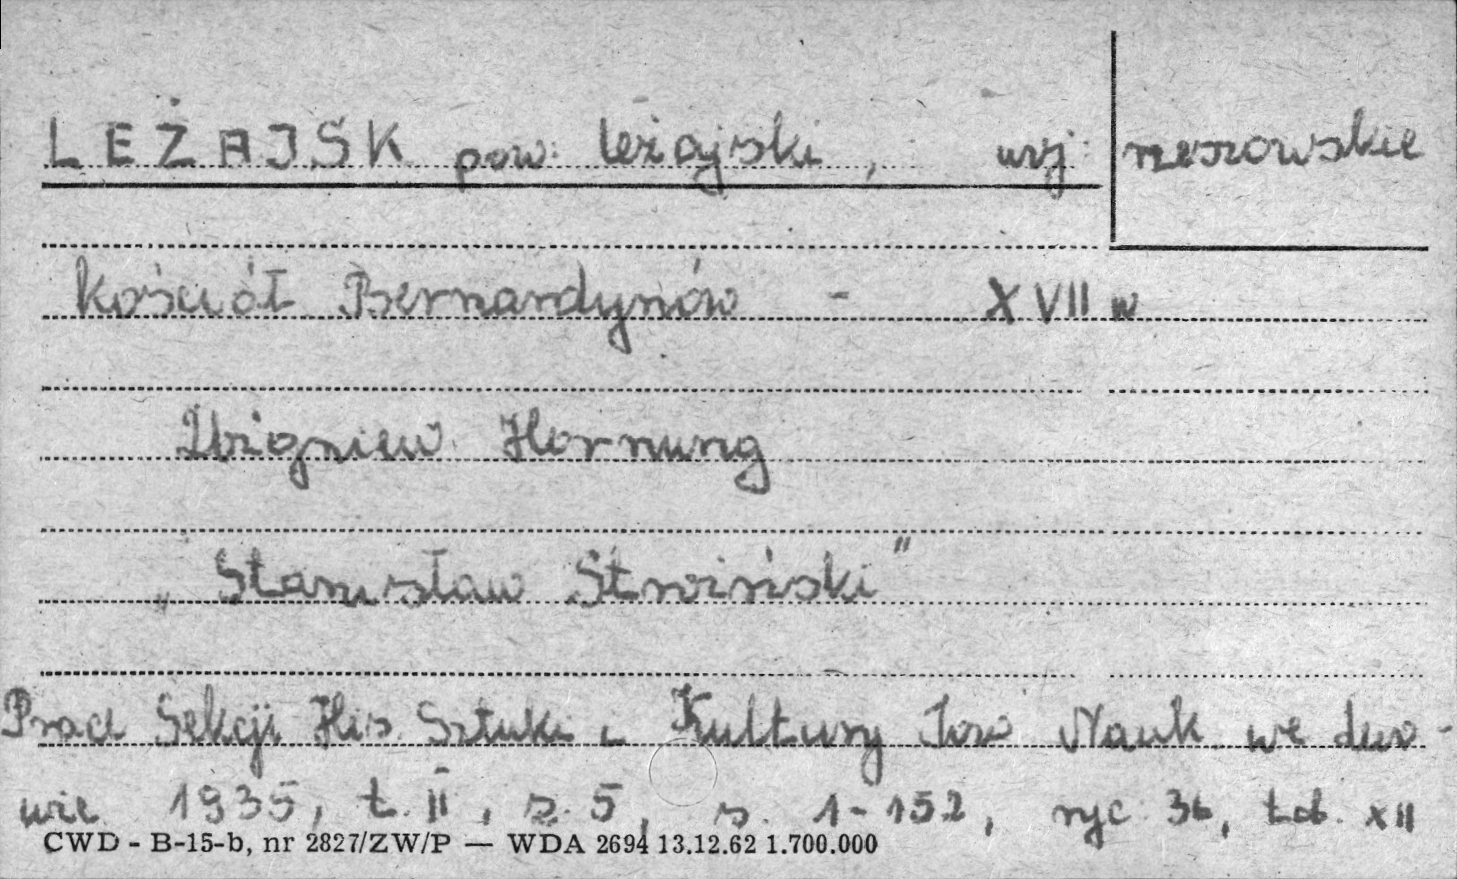 LEŻAJSK pow. leżajski, wj. rzeszowskie
Kościół Bernardynów - XVII w
Zbigniew Hornung
„Stanisław Stroiński"
Prace Sekcji His. Sztuki i Kultury Tow Nauk we Lwo-
wie 1935, t. II, z. 5, s. 1-152, ryc. 36, tab. XII
CWD - B-15-b, nr 2827/ZW/P — WDA 2694 13.12.62 1.700.000